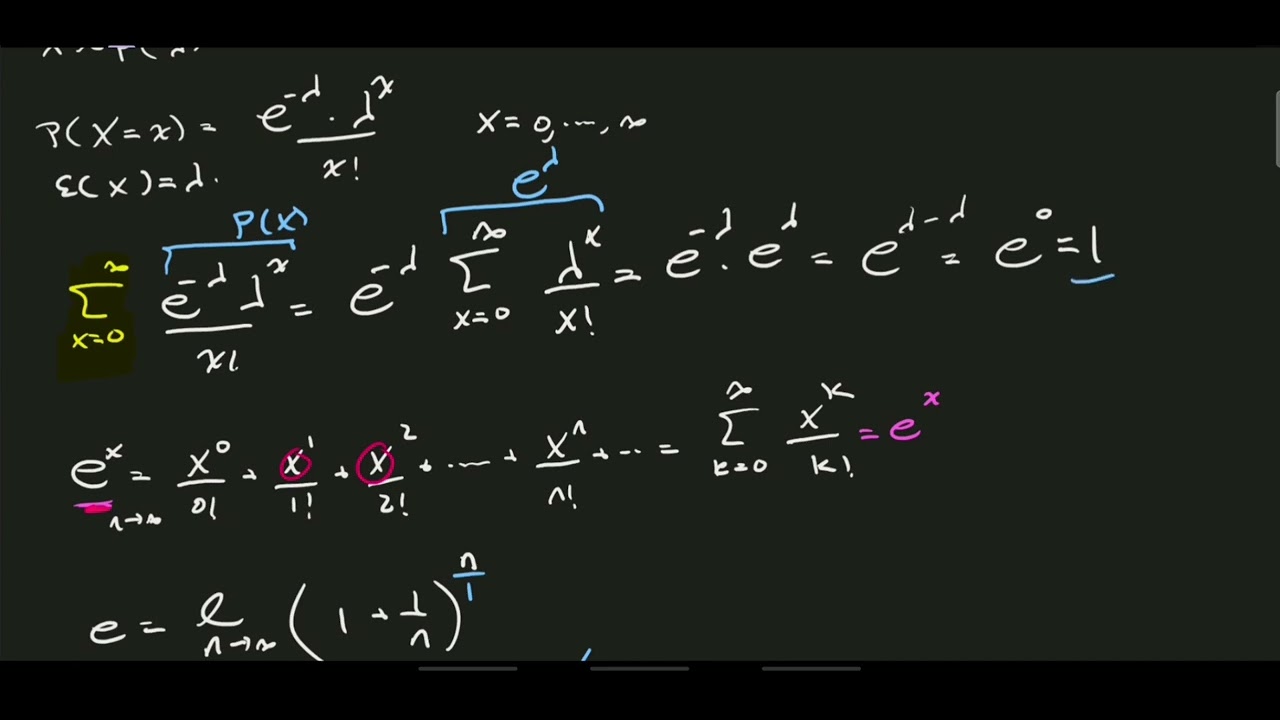 P(X=x) = e^{-λ} · λ^x / x!   x = 0, ..., ∞
E(X) = λ.
P(X)   e^λ
∑_{x=0}^{∞} e^{-λ} λ^x / x! = e^{-λ} ∑_{x=0}^{∞} λ^x / x! = e^{-λ} · e^λ = e^{λ-λ} = e^0 = 1
e^x = x^0 / 0! + x^1 / 1! + x^2 / 2! + .... + x^n / n! + ... = ∑_{k=0}^{∞} x^k / k! = e^x
n→∞
e = ℓ_{n→∞} ( 1 + 1/n )^{n/1}